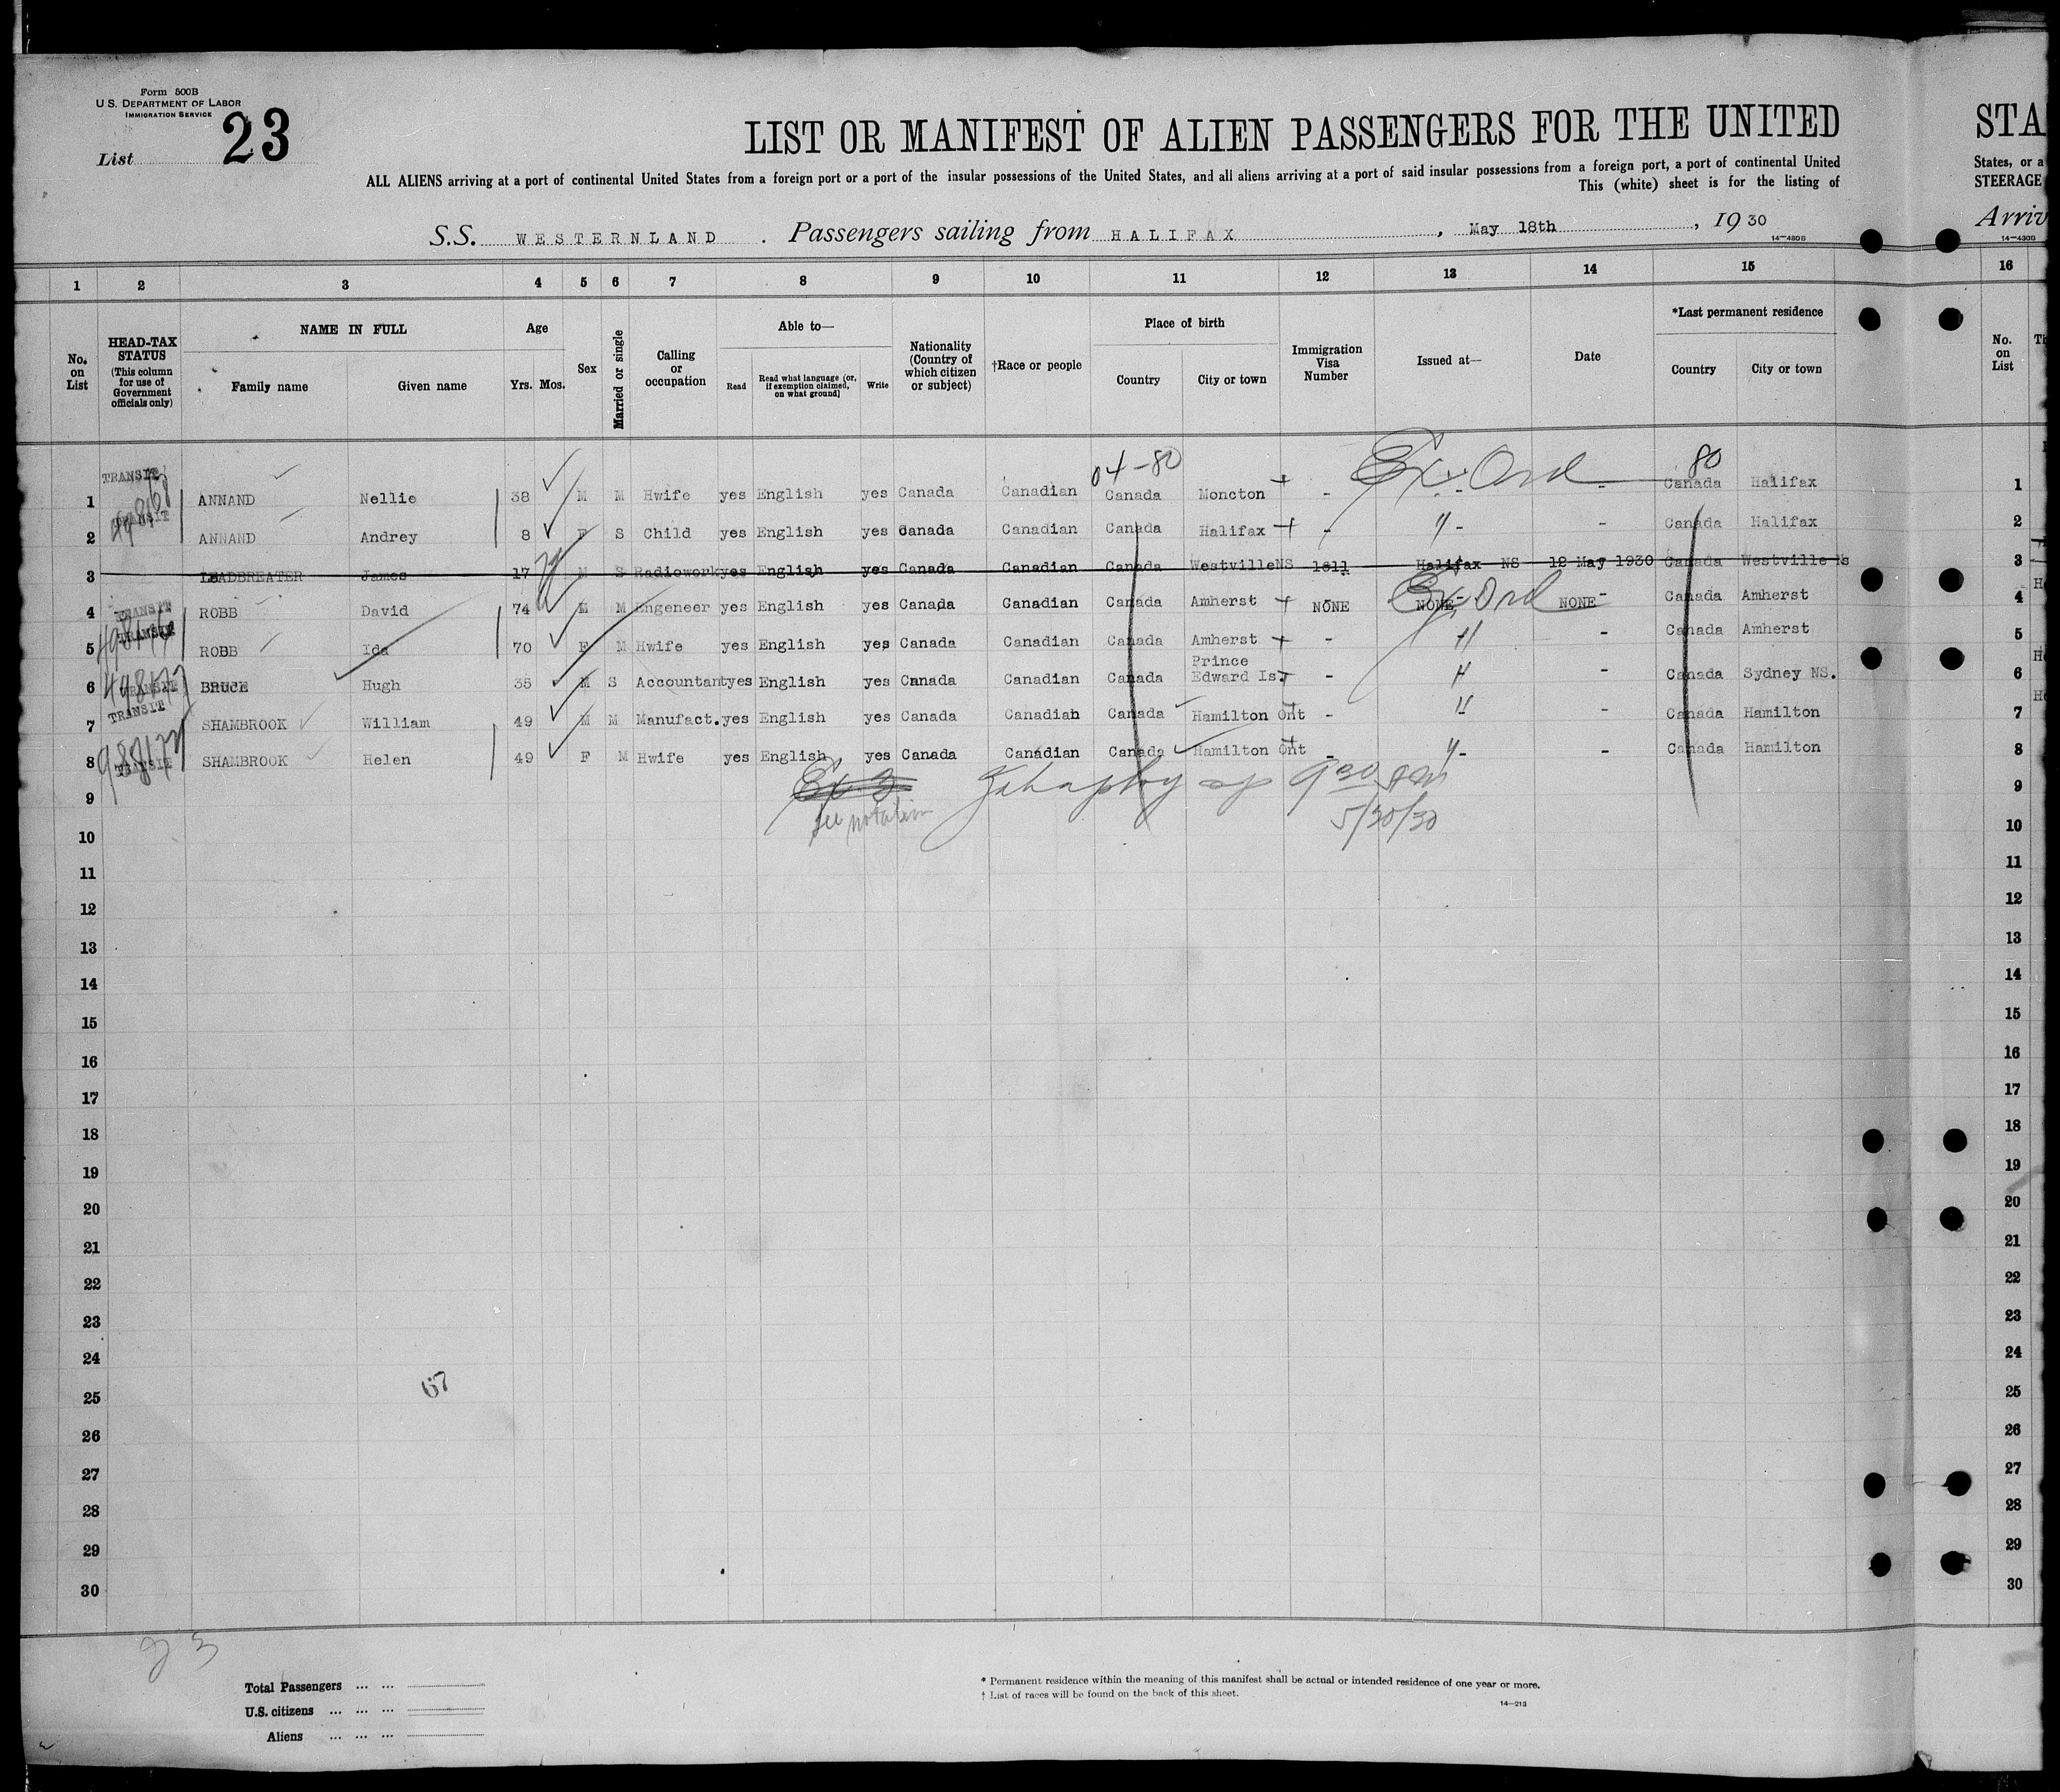 Form 500B
U.S. DEPARTMENT OF LABOR
IMMIGRATION SERVICE
List 23
LIST OR MANIFEST OF ALIEN PASSENGERS FOR THE UNITED
STA
ALL ALIENS arriving at a port of continental United States from a foreign port or a port of the insular possessions of the United States, and all aliens arriving at a port of said insular possessions from a foreign port, a port of continental United
States, or a
This (white) sheet is for the listing of
STEERAGE
S.S. WESTERNLAND . Passengers sailing from HALIFAX , May 18th , 19 30
Arriv
14-430B
14-430B
1 2 3 4 5 6 7 8 9 10 11 12 13 14 15 16
No. on List
HEAD-TAX STATUS (This column for use of Government officials only)
NAME IN FULL
Family name
Given name
Age
Yrs. Mos.
Sex
Married or single
Calling or occupation
Able to—
Read
Read what language (or, if exemption claimed, on what ground)
Write
Nationality (Country of which citizen or subject)
†Race or people
Place of birth
Country
City or town
Immigration Visa Number
Issued at—
Date
*Last permanent residence
Country
City or town
No. on List
04-80 Ex Ord 80
1 TRANSIT ANNAND Nellie 38 M M Hwife yes English yes Canada Canadian Canada Moncton - - - Canada Halifax 1
2 TRANSIT ANNAND Andrey 8 F S Child yes English yes Canada Canadian Canada Halifax - " - - Canada Halifax 2
3 LEADBREATER James 17 M S Radiowork yes English yes Canada Canadian Canada Westville NS 1811 Halifax NS 12 May 1930 Canada Westville Ns 3
4 TRANSIT ROBB David 74 M M Engeneer yes English yes Canada Canadian Canada Amherst NONE NONE Ex Ord NONE Canada Amherst 4
5 TRANSIT ROBB Ida 70 F M Hwife yes English yes Canada Canadian Canada Amherst - " - Canada Amherst 5
6 TRANSIT BRUCE Hugh 35 M S Accountant yes English yes Canada Canadian Canada Prince Edward Is. - " - Canada Sydney NS. 6
7 TRANSIT SHAMBROOK William 49 M M Manufact. yes English yes Canada Canadiah Canada Hamilton Ont - " - Canada Hamilton 7
8 TRANSIT SHAMBROOK Helen 49 F M Hwife yes English yes Canada Canadian Canada Hamilton Ont - " - Canada Hamilton 8
9 9 30 AM 9
see notation 5/30/30
10 10
11 11
12 12
13 13
14 14
15 15
16 16
17 17
18 18
19 19
20 20
21 21
22 22
23 23
24 24
67
25 25
26 26
27 27
28 28
29 29
30 30
23
Total Passengers ... ...
U.S. citizens ... ... ...
Aliens ... ... ...
* Permanent residence within the meaning of this manifest shall be actual or intended residence of one year or more.
† List of races will be found on the back of this sheet.
14-213